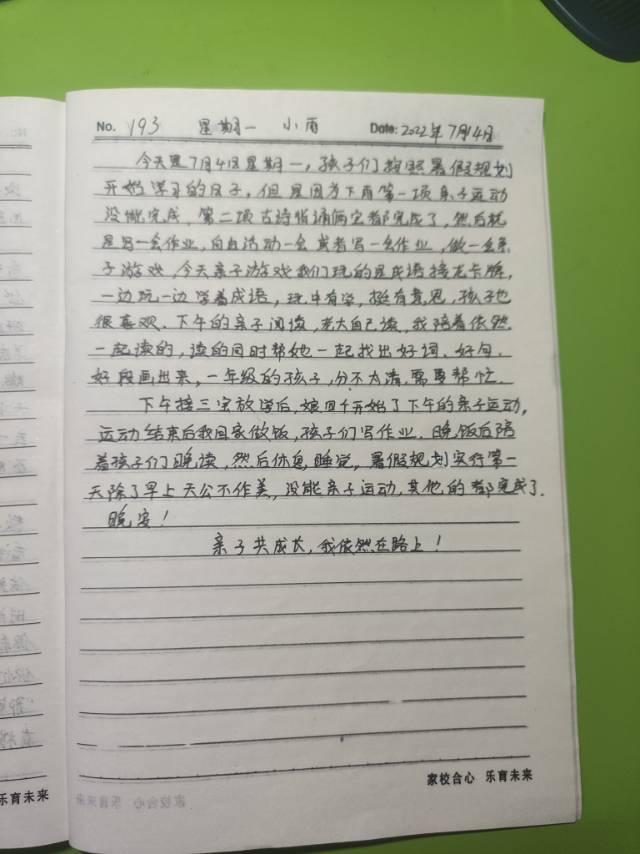 No. 193 星期一 小雨 Date: 2022年7月4日
今天是7月4日星期一,孩子们按照暑假规划
开始学习的日子,但是因为下雨第一项亲子运动
没能完成,第二项古诗背诵俩宝都完成了,然后就
是写一会作业,自由活动一会或者写一会作业,做一会亲
子游戏,今天亲子游戏我们玩的是成语接龙卡牌,
一边玩一边学着成语,玩中有学,挺有意思,孩子也
很喜欢.下午的亲子阅读,老大自己读,我陪着依然
一起读的,读的同时帮她一起找出好词、好句、
好段画出来,一年级的孩子,分不太清,需要帮忙.
下午接三宝放学后,娘四个开始了下午的亲子运动,
运动结束后我回家做饭,孩子们写作业.晚饭后陪
着孩子们晚读,然后休息睡觉,暑假规划实行第一
天除了早上天公不作美,没能亲子运动,其他的都完成了.
晚安!
亲子共成长,我依然在路上!
家校合心 乐育未来
乐育未来